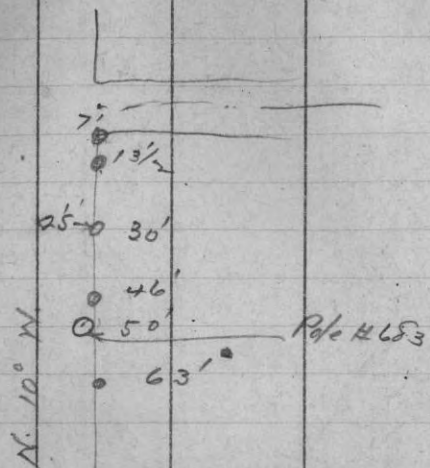 7'
13 1/2
25' 30'
46'
50' Pole # 683
63'
N. 10° W